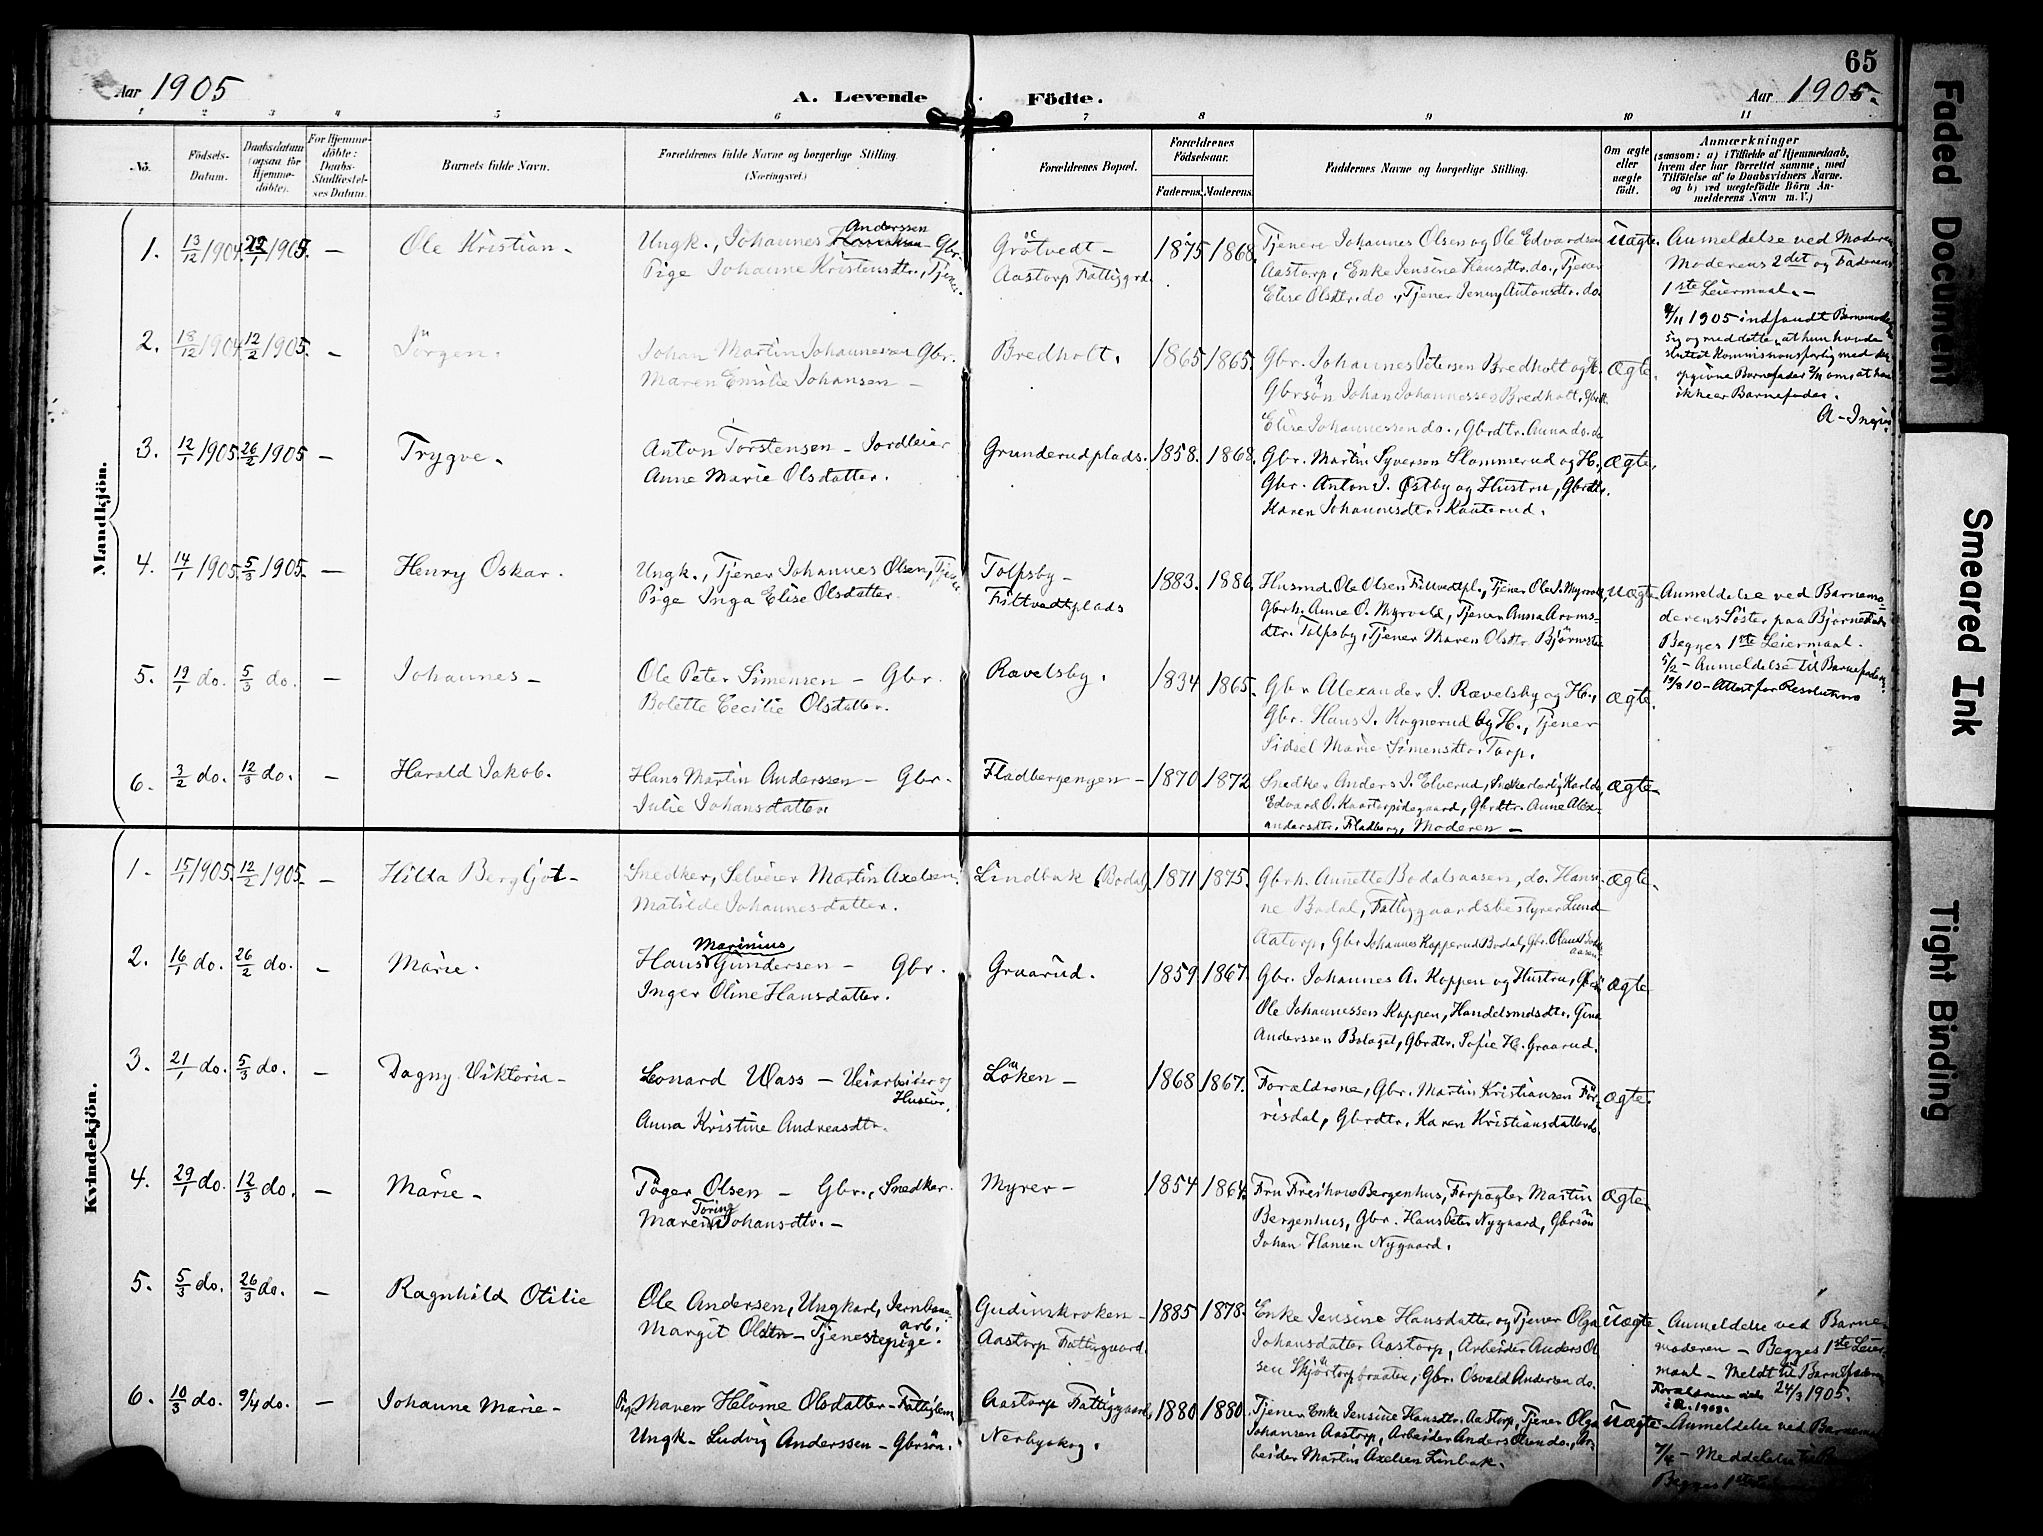 65
Aar 1905
A. Levende Födte.
Aar 1905.
1 2 3 4 5 6 7 8 9 10 11
No.
Födsels-
Datum.
Daabsdatum
(ogsaa for
Hjemme-
döbte).
For Hjemme-
döbte:
Daabs-
Stadfæstel-
ses Datum.
Barnets fulde Navn.
Forældrenes fulde Navne og borgerlige Stilling.
(Næringsvei.)
Forældrenes Bopæl.
Forældrenes
Födselsaar.
Faderens.
Moderens.
Faddernes Navne og borgerlige Stilling.
Om ægte
eller
uægte
födt.
Anmærkninger
(saasom: a) i Tilfælde af Hjemmedaab,
hvem der har forrettet samme, med
Tilföielse af to Daabsvidners Navne.
og b) ved uægtefödte Börn An-
melderens Navn m. V.)
Mandkjön.
1. 13/12 1904. 29/1 1905. — Ole Kristian —
Anderssen
Ungk., Johannes — Gbr.
Pige Johanne Kristensdtr., Tjener.
Grötvedt —
Aastorp Fattiggrd.
1875 1868.
Tjenere Johannes Olsen og Ole Edvardsen
Aastorp, Enke Jensine Hansdtr. do., Tjener
Elise Olsdtr. do., Tjener Jenny Antonsdtr. do.
Uægte.
Anmeldelse ved Moderen
Moderens 2det og Faderens
1ste Leiermaal. —
/11 1905 indfandt Barnemoder
sig og meddelte, at hun havde
sluttet Kommissionsforlig med den
opgivne Barnefader 2/11 om, at han
ikke er Barnefader.
2. 18/12 1904. 12/2 1905. — Jörgen.
Johan Martin Johannessen Gbr.
Maren Emilie Johansen —
Bredholt.
1865 1865.
Gbr. Johannes Petersen Bredholt og H.
Gbrsön Johan Johannessen Bredholt, Gbrdtr.
Elise Johannessen do., Gbrdtr. Anna do. do
Ægte.
3. 12/1 1905. 26/2 1905 — Trygve.
Anton Torstensen — Jordleier
Anne Marie Olsdatter.
Grunderudplads.
1858. 1868.
Gbr. Martin Syversen Slammerud og H.,
Gbr. Anton J. Østby og Hustru, Gbrdtr.
Karen Johannesdtr. Kauterud.
Ægte.
4. 14/1 1905. 5/3 1905. — Henry Oskar.
Ungk., Tjener Johannes Olsen, Tjener
Pige Inga Elise Olsdatter.
Tolpsby —
Fittvedtplads
1883. 1886.
Husmd. Ole Olsen Fittvedtpl., Tjener Ole J. Myrvold,
Gbrk. Anne O. Myrvold, Tjener Anna Arons-
dtr. Tolpsby, Tjener Maren Olsdtr. Björnstad
Uægte
Anmeldelse ved Barnemo-
derens Söster paa
Begges 1ste Leiermaal.
5/2 — Anmeldelse til Barnefaderen.
19/8 10 — Attest for Resolutions
5. 19/1 do. 5/3 do. — Johannes —
Ole Peter Simensen — Gbr.
Bolette Cecilie Olsdatter.
Rævelsby.
1834 1865.
Gbr. Alexander J. Rævelsby og H.,
Gbr. Hans J. Kognerud og H., Tjener
Sidsel Marie Simensdtr. Torp.
Ægte.
6. 3/2 do. 12/3 do. — Harald Jakob.
Hans Martin Anderssen — Gbr.
Julie Johansdatter.
Fladbergengen —
1870 1872
Snedker Anders J. Elverud,
Edvard O. Kaatorpödegaard, Gbrdtr. Anne Alex-
andersdtr. Fladberg, Moderen —
Ægte
Kvindekjön.
1. 15/1 1905. 12/2 1905. — Hilda Bergljot —
Snedker, Selveier Martin Axelsen.
Matilde Johannesdatter.
Lindbak (Bodal).
1871 1875.
Gbrk. Annette Bodalsaasen, do. Hansi-
ne Bodal, Fattiggaardsbestyrer Lund
Aatorp, Gbr. Johannes Kopperud Bodal, Gbr. Olaus Bodals-
aasen
Ægte.
2. 16/1 do. 26/2 do. — Marie.
Marinius
Hans Gundersen — Gbr.
Inger Oline Hansdatter.
Graarud.
1859 1867.
Gbr. Johannes A. Koppen og Hustru, Gbrsön
Ole Johannessen Koppen, Handelsmdsdtr. Gina
Anderssen Bolaget, Gbrdtr. Sofie H. Graarud.
Ægte
3. 21/1 do. 5/3 do. — Dagny Viktoria —
Leonard Wass — Veiarbeider og
Huseier.
Anna Kristine Andreasdtr.
Löken —
1868 1867.
Forældrene, Gbr. Martin Kristiansen For-
risdal, Gbrdtr. Karen Kristiansdatter do.
Ægte.
4. 29/1 do. 12/3 do. — Marie —
Töger Olsen — Gbr., Snedker.
Toring
Maren Johansdtr. —
Myrer —
1854 1864.
Fru Freihow Bergenhus, Forpagter Martin
Bergenhus, Gbr. Hans Peter Nygaard, Gbrsön
Johan Hansen Nygaard.
Ægte
5. 5/3 do. 26/3 do. — Ragnhild Otilie
Ole Andersen, Ungkarl, Jernbane-
arb.
Margit Olsdtr — Tjenestepige.
Gudimkroken —
Aastorp Fattiggaard.
1885 1878.
Enke Jensine Hansdatter og Tjener Olga
Johansdatter Aastorp, Arbeider Anders Ol-
sen Skjörtorpbraaten, Gbr. Osvald Andersen do.
Uægte
Anmeldelse ved Barne-
moderen — Begges 1ste Leier-
maal — Meldt til Barnefaderen
24/3 1905.
6. 10/3 do. 9/4 do. — Johanne Marie —
Pige Maren Helvine Olsdatter — Fattiglem
Ungk. Ludvig Anderssen — Gbrsön.
Aastorp Fattiggaard,
Nerbyskog.
1880 1880.
Tjener Enke Jensine Hansdtr. Aastorp, Tjener Olga
Johansen Aastorp, Arbeider Anders Olsen do., Ar-
beider Martin Axelsen Linbak.
Uægte
Anmeldelse ved Barnemo
7/4 — Meddelelse til
Begges 1ste
Faded Document
Smeared Ink
Tight Binding